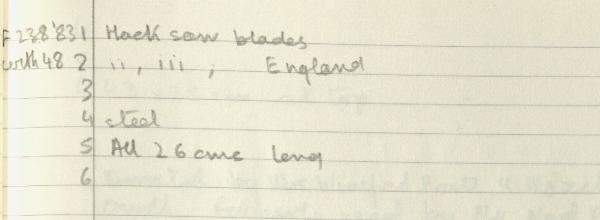 F 238'83 1 Hack saw blades
with 48 2 ii, iii ; England
3
4 steel
5 All 26 cms long
6